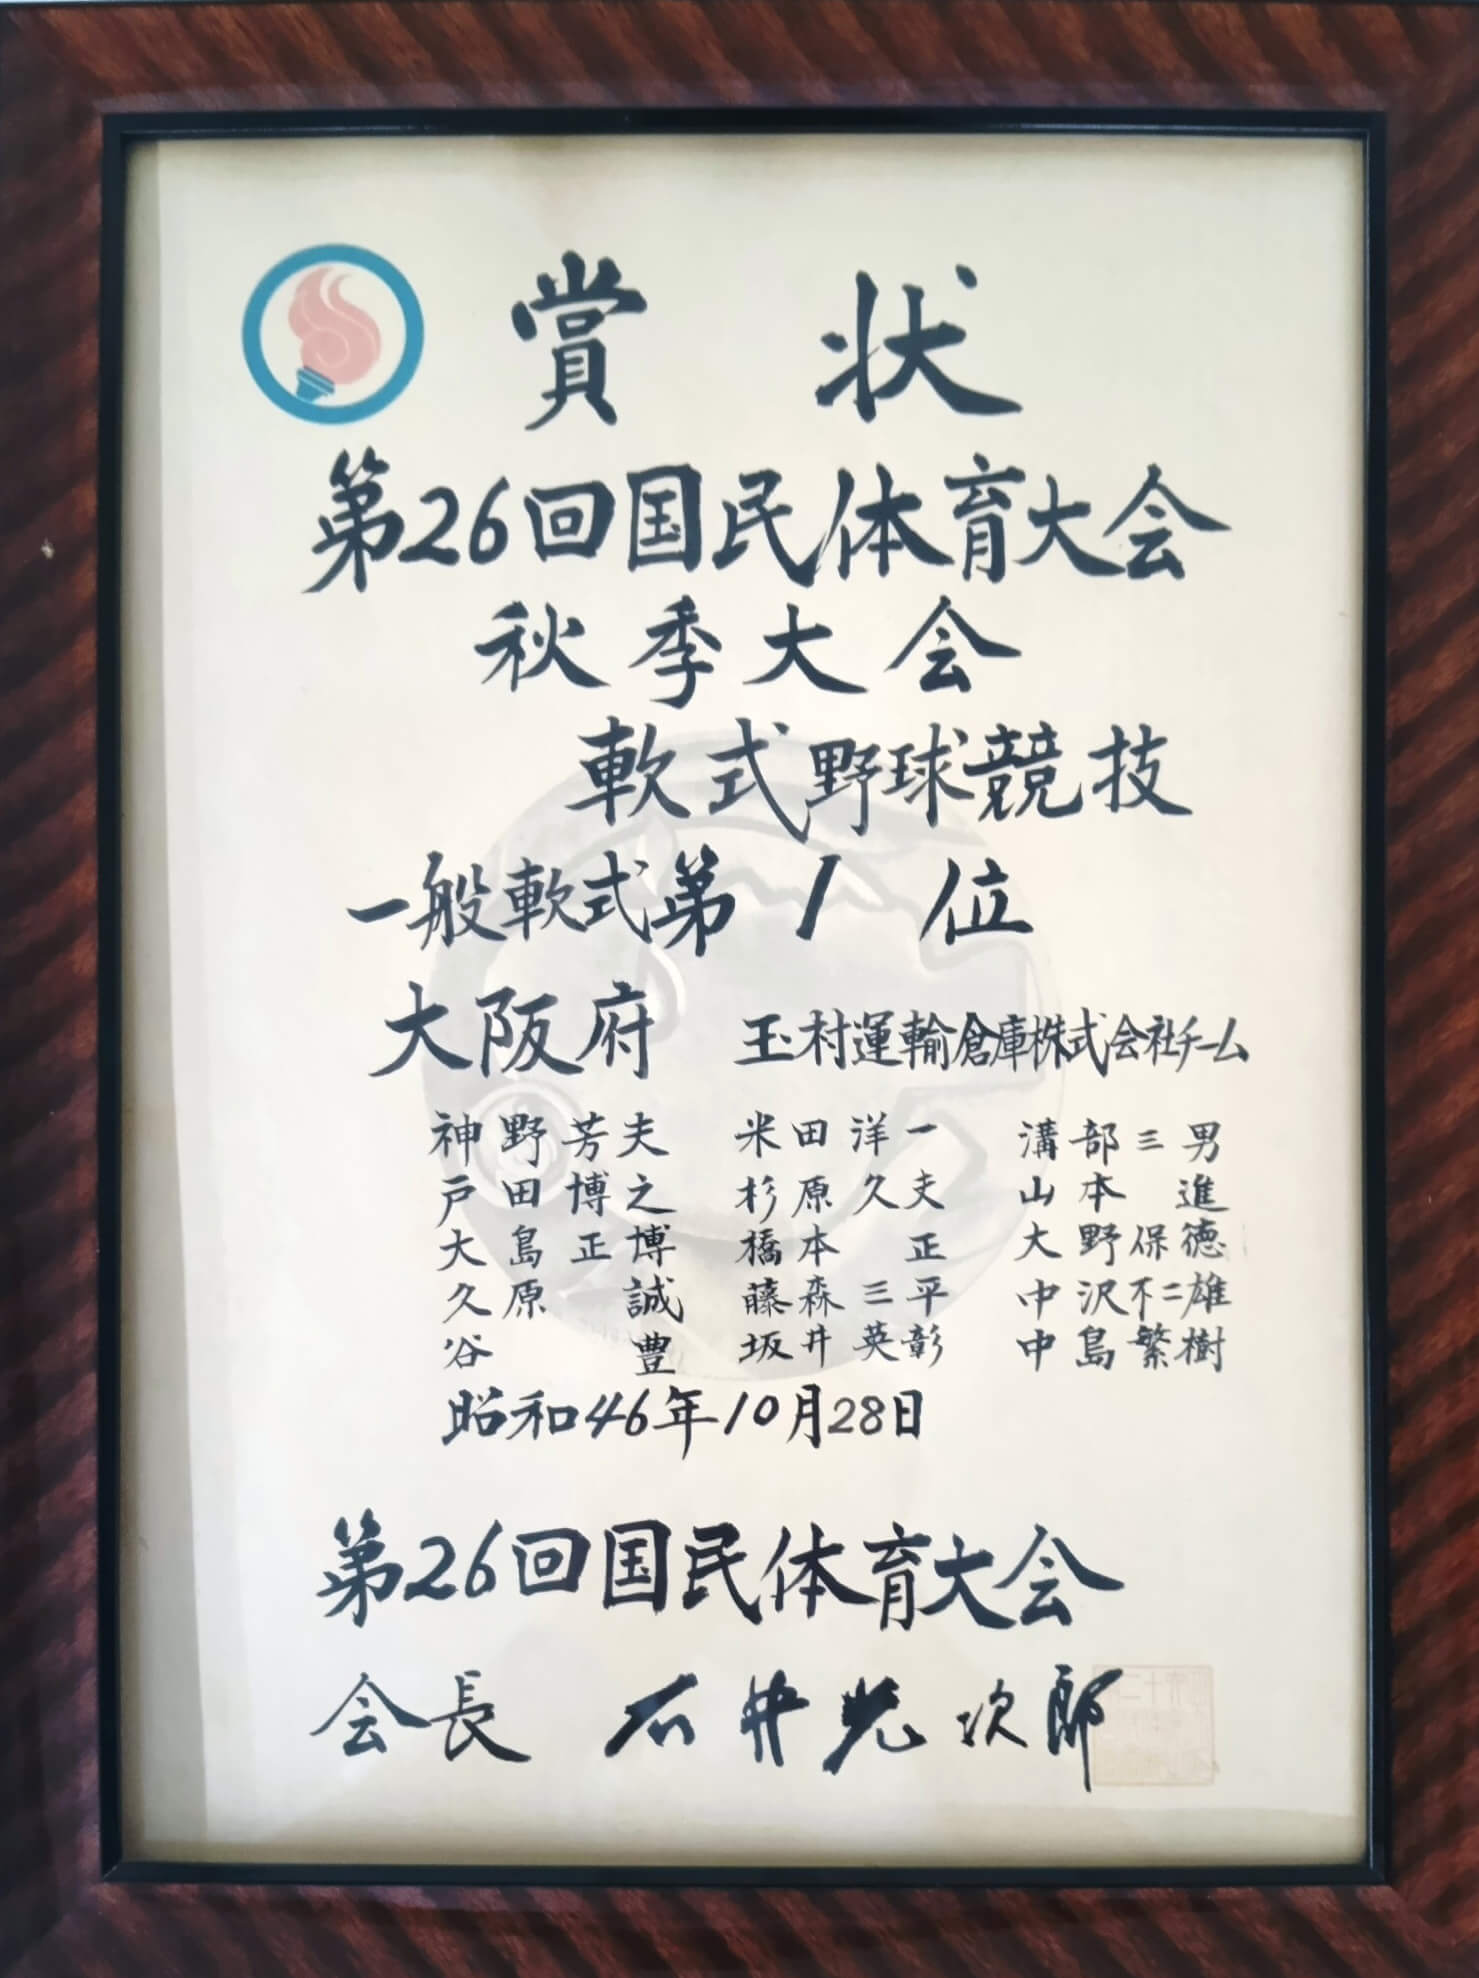 賞状
第26回国民体育大会
秋季大会
軟式野球競技
一般軟式第1位
大阪府 玉村運輸倉庫株式会社チーム
神野芳夫 米田洋一 溝部三男
戸田博之 杉原久夫 山本進
大島正博 橋本正 大野保徳
久原誠 藤森三平 中沢不二雄
谷豊 坂井英彰 中島繁樹
昭和46年10月28日
第26回国民体育大会
会長 石井光次郎